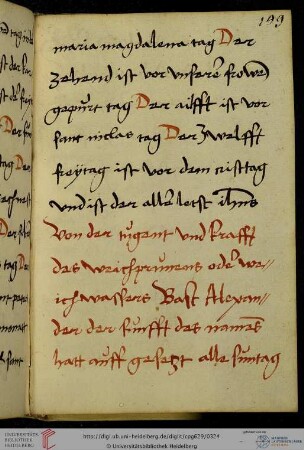 199
maria magdalena tag Der
zehend ist vor vnser frowen
gepurt tag Der ailfft ist vor
sant niclas tag Der zwelfft
freytag ist vor dem cristtag
vnd ist der aller letst ihms
Von der tugent vnd krafft
des weichprunens oder wei-
ichwassers Bast Alexan-
der der funfft des namens
hatt auff gesetzt alle suntag
UNIVERSITÄTS-
BIBLIOTHEK
HEIDELBERG
http://digi.ub.uni-heidelberg.de/diglit/cpg629/0324
© Universitätsbibliothek Heidelberg